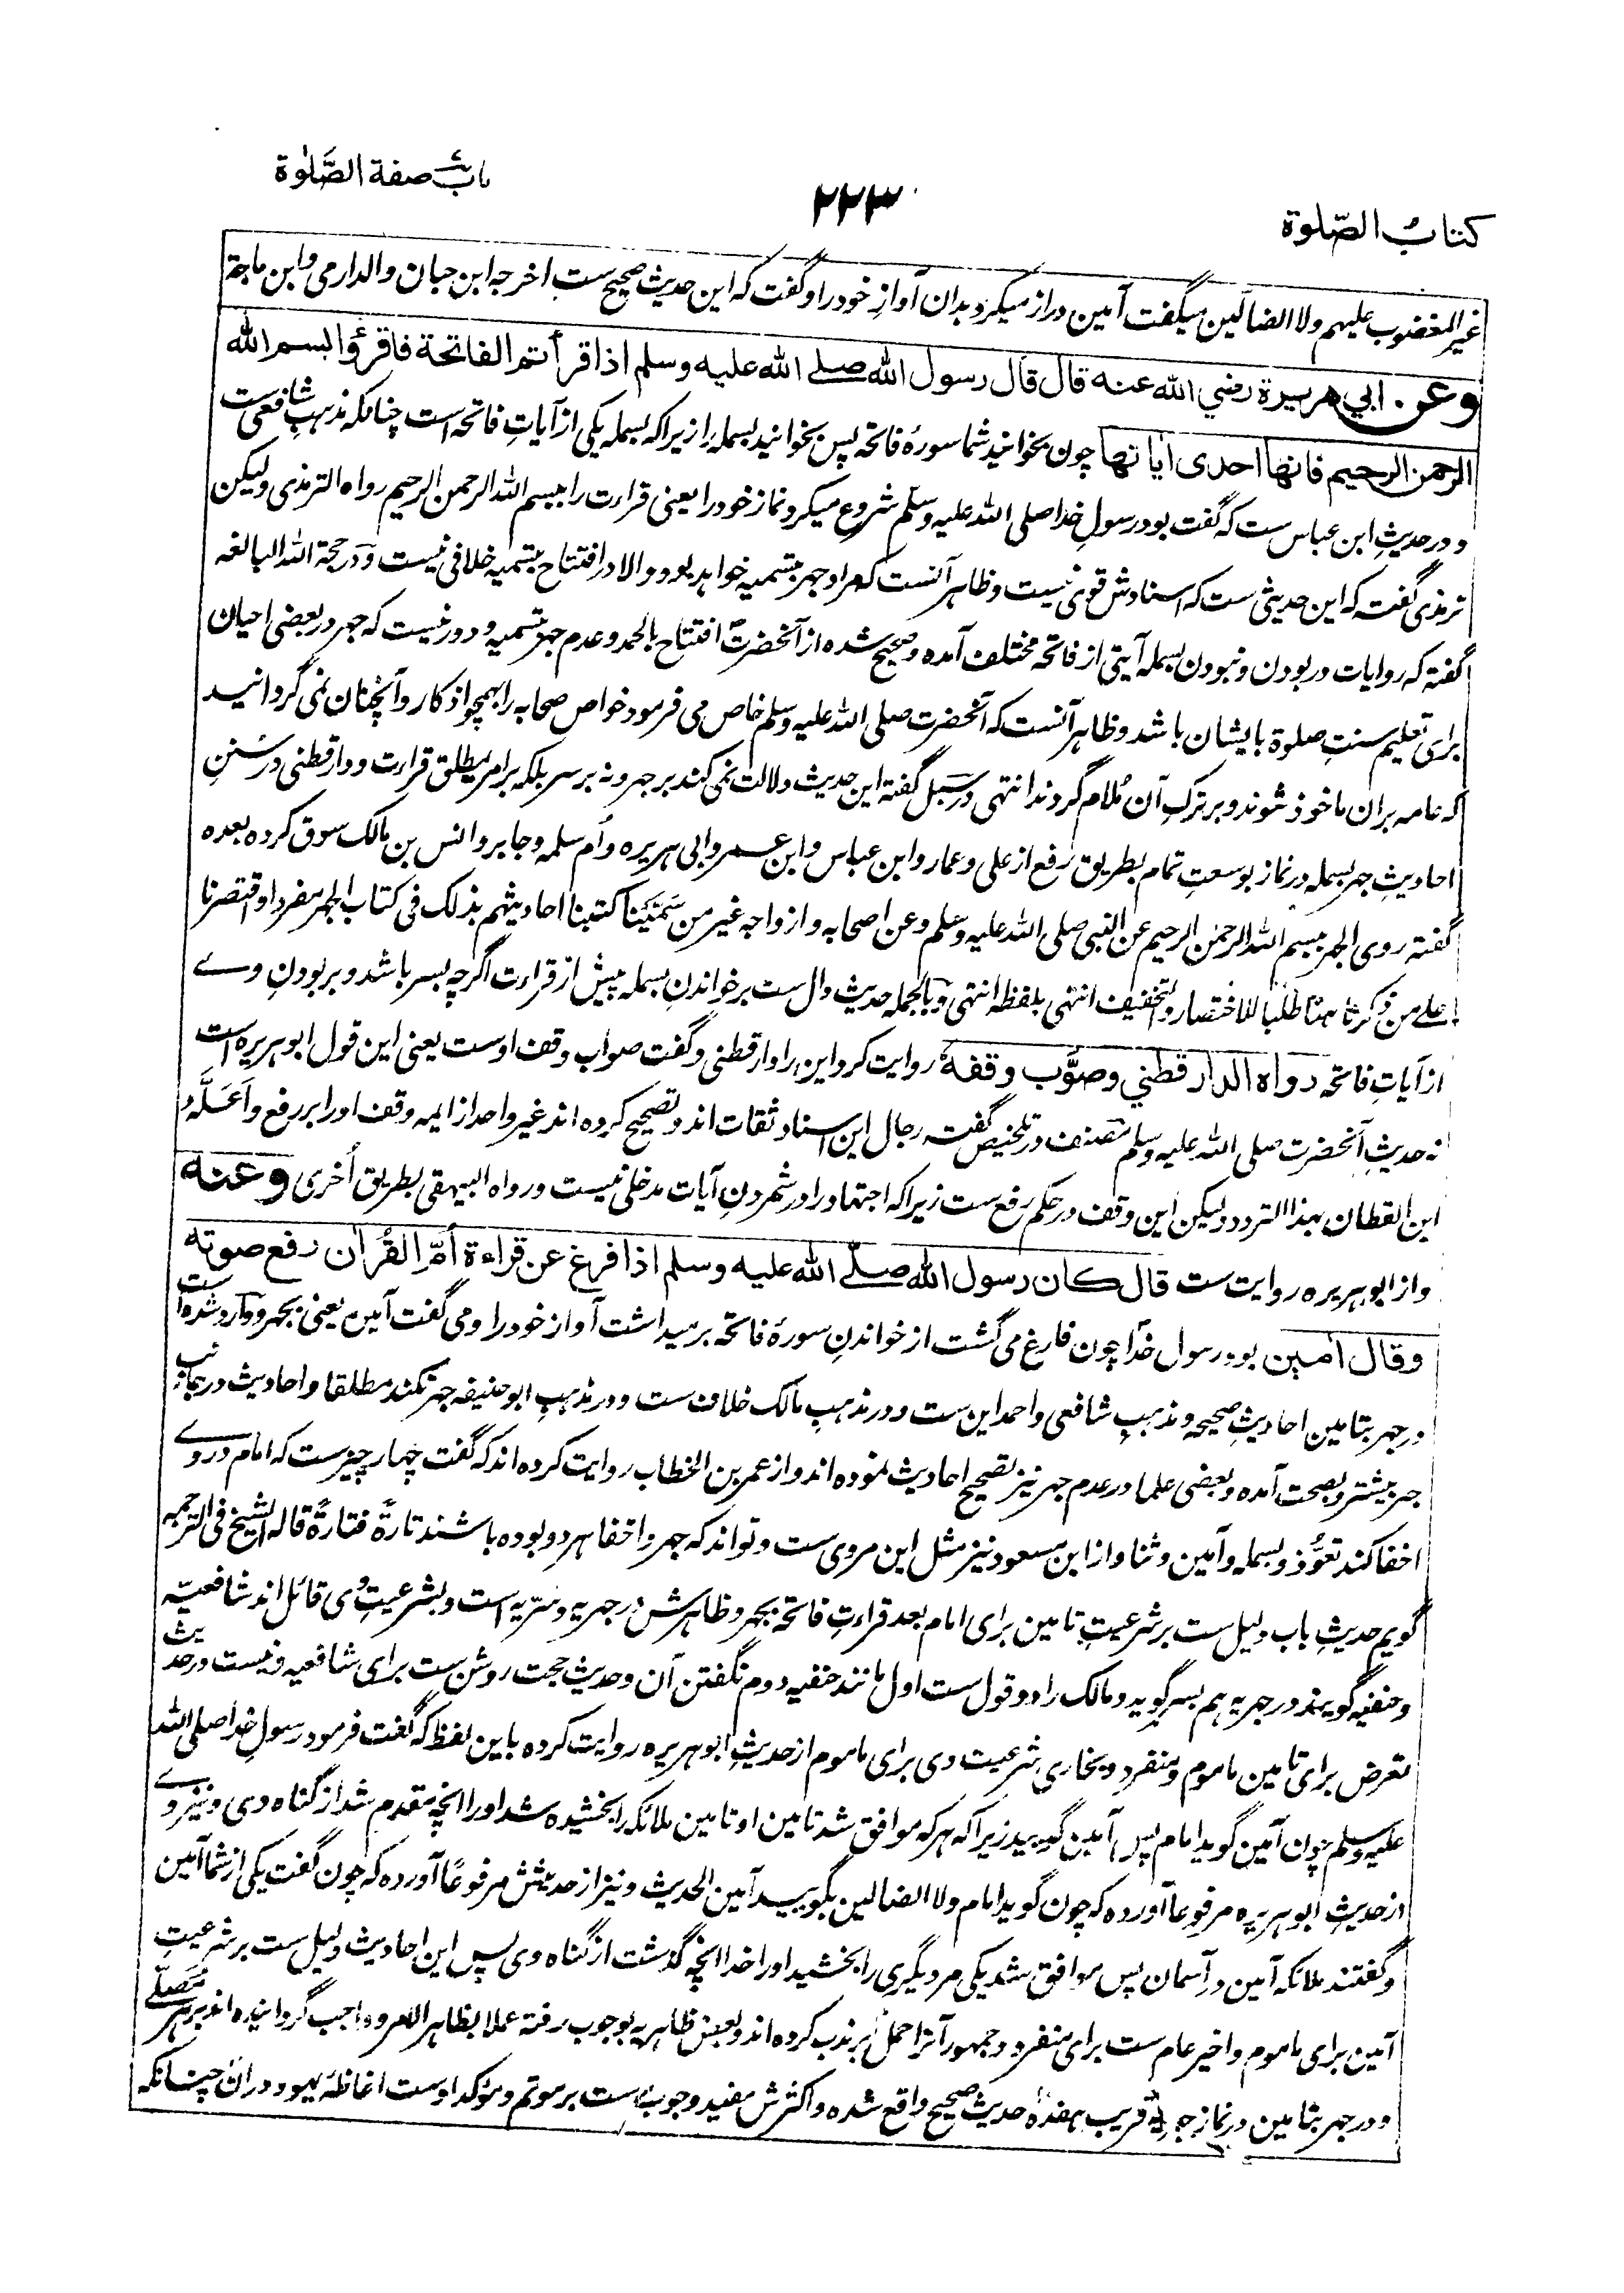 کتابُ الصّلوة
۲۲۳
باب صفة الصَّلوٰة
غیر المغضوب علیهم ولا الضالین میگفت آمین دراز میکرد بدان آوازِ خود را و گفت که این حدیث صحیح ست اخرجه ابن حبان والدارمی وابن ماجة
وعن ابي هريرة رضي الله عنه قال قال رسول الله صلے الله عليه وسلم اذا قرأتم الفاتحة فاقرؤا بسم الله
الرحمن الرحيم فانها احدى اياتها چون بخوانید شما سورهٔ فاتحه پس بخوانید بسمله را زیرا که بسمله یکی از آیاتِ فاتحه است چنانکه مذهب شافعی ست
و در حدیثِ ابن عباس ست که گفت بود رسولِ خدا صلی الله علیه وسلم شروع میکرد نماز خود را یعنی قراءت را ببسم الله الرحمن الرحیم رواه الترمذی ولیکن
ترمذی گفت که این حدیثی ست که اسنادش قوی نیست و ظاهر آنست که مراد جهر بتسمیه خواهد بود و الا در افتتاح بتسمیه خلافی نیست و در حجة الله البالغه
گفته که روایات در بودن و نبودن بسمله آیتی از فاتحه مختلف آمده و صحیح شده از آنحضرت افتتاح بالحمد و عدم جهر بتسمیه و دور نیست که جهر در بعضی احیان
برای تعلیم سنتِ صلوة بایشان باشد و ظاهر آنست که آنحضرت صلی الله علیه وسلم خاص می فرمود خواص صحابه را بهمچو اذکار و آنچنان نمی گردانید
که عامه بران ماخوذ شوند و بر ترکِ آن مُلام گردند انتهی در سبل گفته این حدیث دلالت نمی کند بر جهر و نه بر سر بلکه بر امر بمطلق قراءت و دارقطنی در سُننِ
احادیثِ جهر بسمله در نماز بوسعتِ تمام بطریق رفع از علی و عمار و ابن عباس و ابن عمر و ابی هریره و اُم سلمه و جابر و انس بن مالک سوق کرده بعده
گفته روی الجهر ببسم الله الرحمن الرحیم عن النبی صلی الله علیه وسلم وعن اصحابه وازواجه غیر من سَمَّیْنا کتبنا احادیثهم بذلک فی کتاب الجهر مفردا واقتصرنا
علے من ذکرنا هنا طلبًا للاختصار والتخفیف انتهی بلفظه انتهی و بالجمله حدیث دال ست بر خواندنِ بسمله پیش از قراءت اگرچه بسر باشد و بر بودنِ وے
از آیاتِ فاتحه رواه الدارقطني وصوَّب وقفه روایت کرد این را دارقطنی و گفت صواب وقف اوست یعنی این قول ابوهریره است
نه حدیثِ آنحضرت صلی الله علیه وسلم مصنف در تلخیص گفته رجال این اسناد ثقات اند و تصحیح کرده اند غیر واحد از ایمه وقف او را بر رفع و اَعَلَّهُ
ابن القطان بهذا التردد ولیکن این وقف در حکم رفع ست زیرا که اجتهاد را در شمردنِ آیات مدخلی نیست و رواه البیهقی بطریق اُخری وعنه
و از ابوهریره روایت ست قال كان رسول الله صلّے الله عليه وسلم اذا فرغ عن قراءة أمّ القرأن رفع صوته
وقال أمين بود رسول خدا چون فارغ می گشت از خواندنِ سورهٔ فاتحه برمیداشت آواز خود را و می گفت آمین یعنی بجهر و وارد شده است
در جهر بتامین احادیثِ صحیحه و مذهبِ شافعی و احمد این ست و در مذهبِ مالک خلاف ست و در مذهبِ ابو حنیفه جهر نکند مطلقا و احادیث در جانب
جهر بیشتر و بصحت آمده و بعضی علما در عدم جهر نیز تصحیح احادیث نموده اند و از عمر بن الخطاب روایت کرده اند که گفت چهار چیزست که امام در وے
اخفا کند تعوُّذ و بسمله و آمین و ثنا و از ابن مسعود نیز مثل این مروی ست و تواند که جهر و اخفا هر دو بوده باشند تارةً فتارةً قاله الشیخ فی الترجمه
گویم حدیثِ باب دلیل ست بر شرعیتِ تامین برای امام بعد قراءتِ فاتحه بجهر و ظاهرش در جهریه و سریه است و بشرعیتِ وی قائل اند شافعیّه
و حنفیه گویند در جهریه هم بسر گوید و مالک را دو قول ست اول مانند حنفیه دوم نگفتن آن و حدیث حجت روشن ست برای شافعیه و نیست در حدیث
تعرض برای تامین ماموم و منفرد و بخاری شرعیت وی برای ماموم از حدیثِ ابوهریره روایت کرده باین لفظ که گفت فرمود رسولِ خدا صلی الله
علیه وسلم چون آمین گوید امام پس آمین گویید زیرا که هر که موافق شد تامین او تامین ملائکه را بخشیده شد او را انچه متقدم شد از گناه وی و نیز وے
از حدیثِ ابوهریره مرفوعاً آورده که چون گوید امام ولا الضالین بگویید آمین الحدیث و نیز از حدیثش مرفوعاً آورده که چون گفت یکی از شما آمین
و گفتند ملائکه آمین در آسمان پس موافق شد یکی مر دیگری را بخشید او را خدا انچه گذشت از گناه وی پس این احادیث دلیل ست بر شرعیتِ
آمین برای ماموم و اخیر عام ست برای منفرد و جمهور آنرا حمل بر ندب کرده اند و بعض ظاهریه بوجوب رفته عملا بظاهر الامر و واجب گردانیده اند بر هر مُصَلّے
و در جهر بتامین در نماز جهریه قریب هفده حدیث صحیح واقع شده و اکثرش مفید وجوب ست بر موتم و مؤکد اوست اغاظهٔ یهود در ان چنانکه